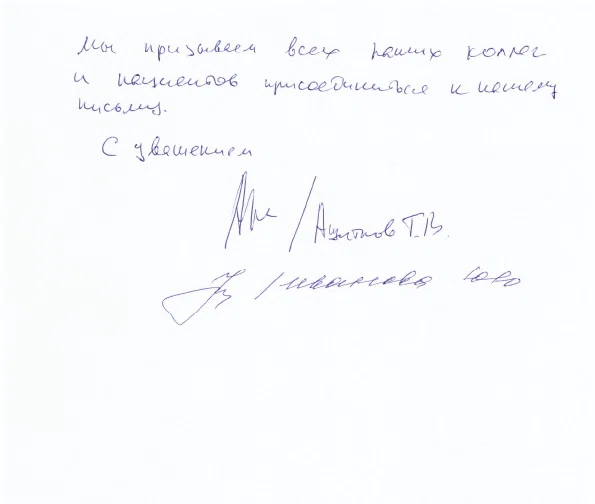 Мы призываем всех наших коллег
и пациентов присоединиться к нашему
письму.
С уважением
Т.В.
Иванова